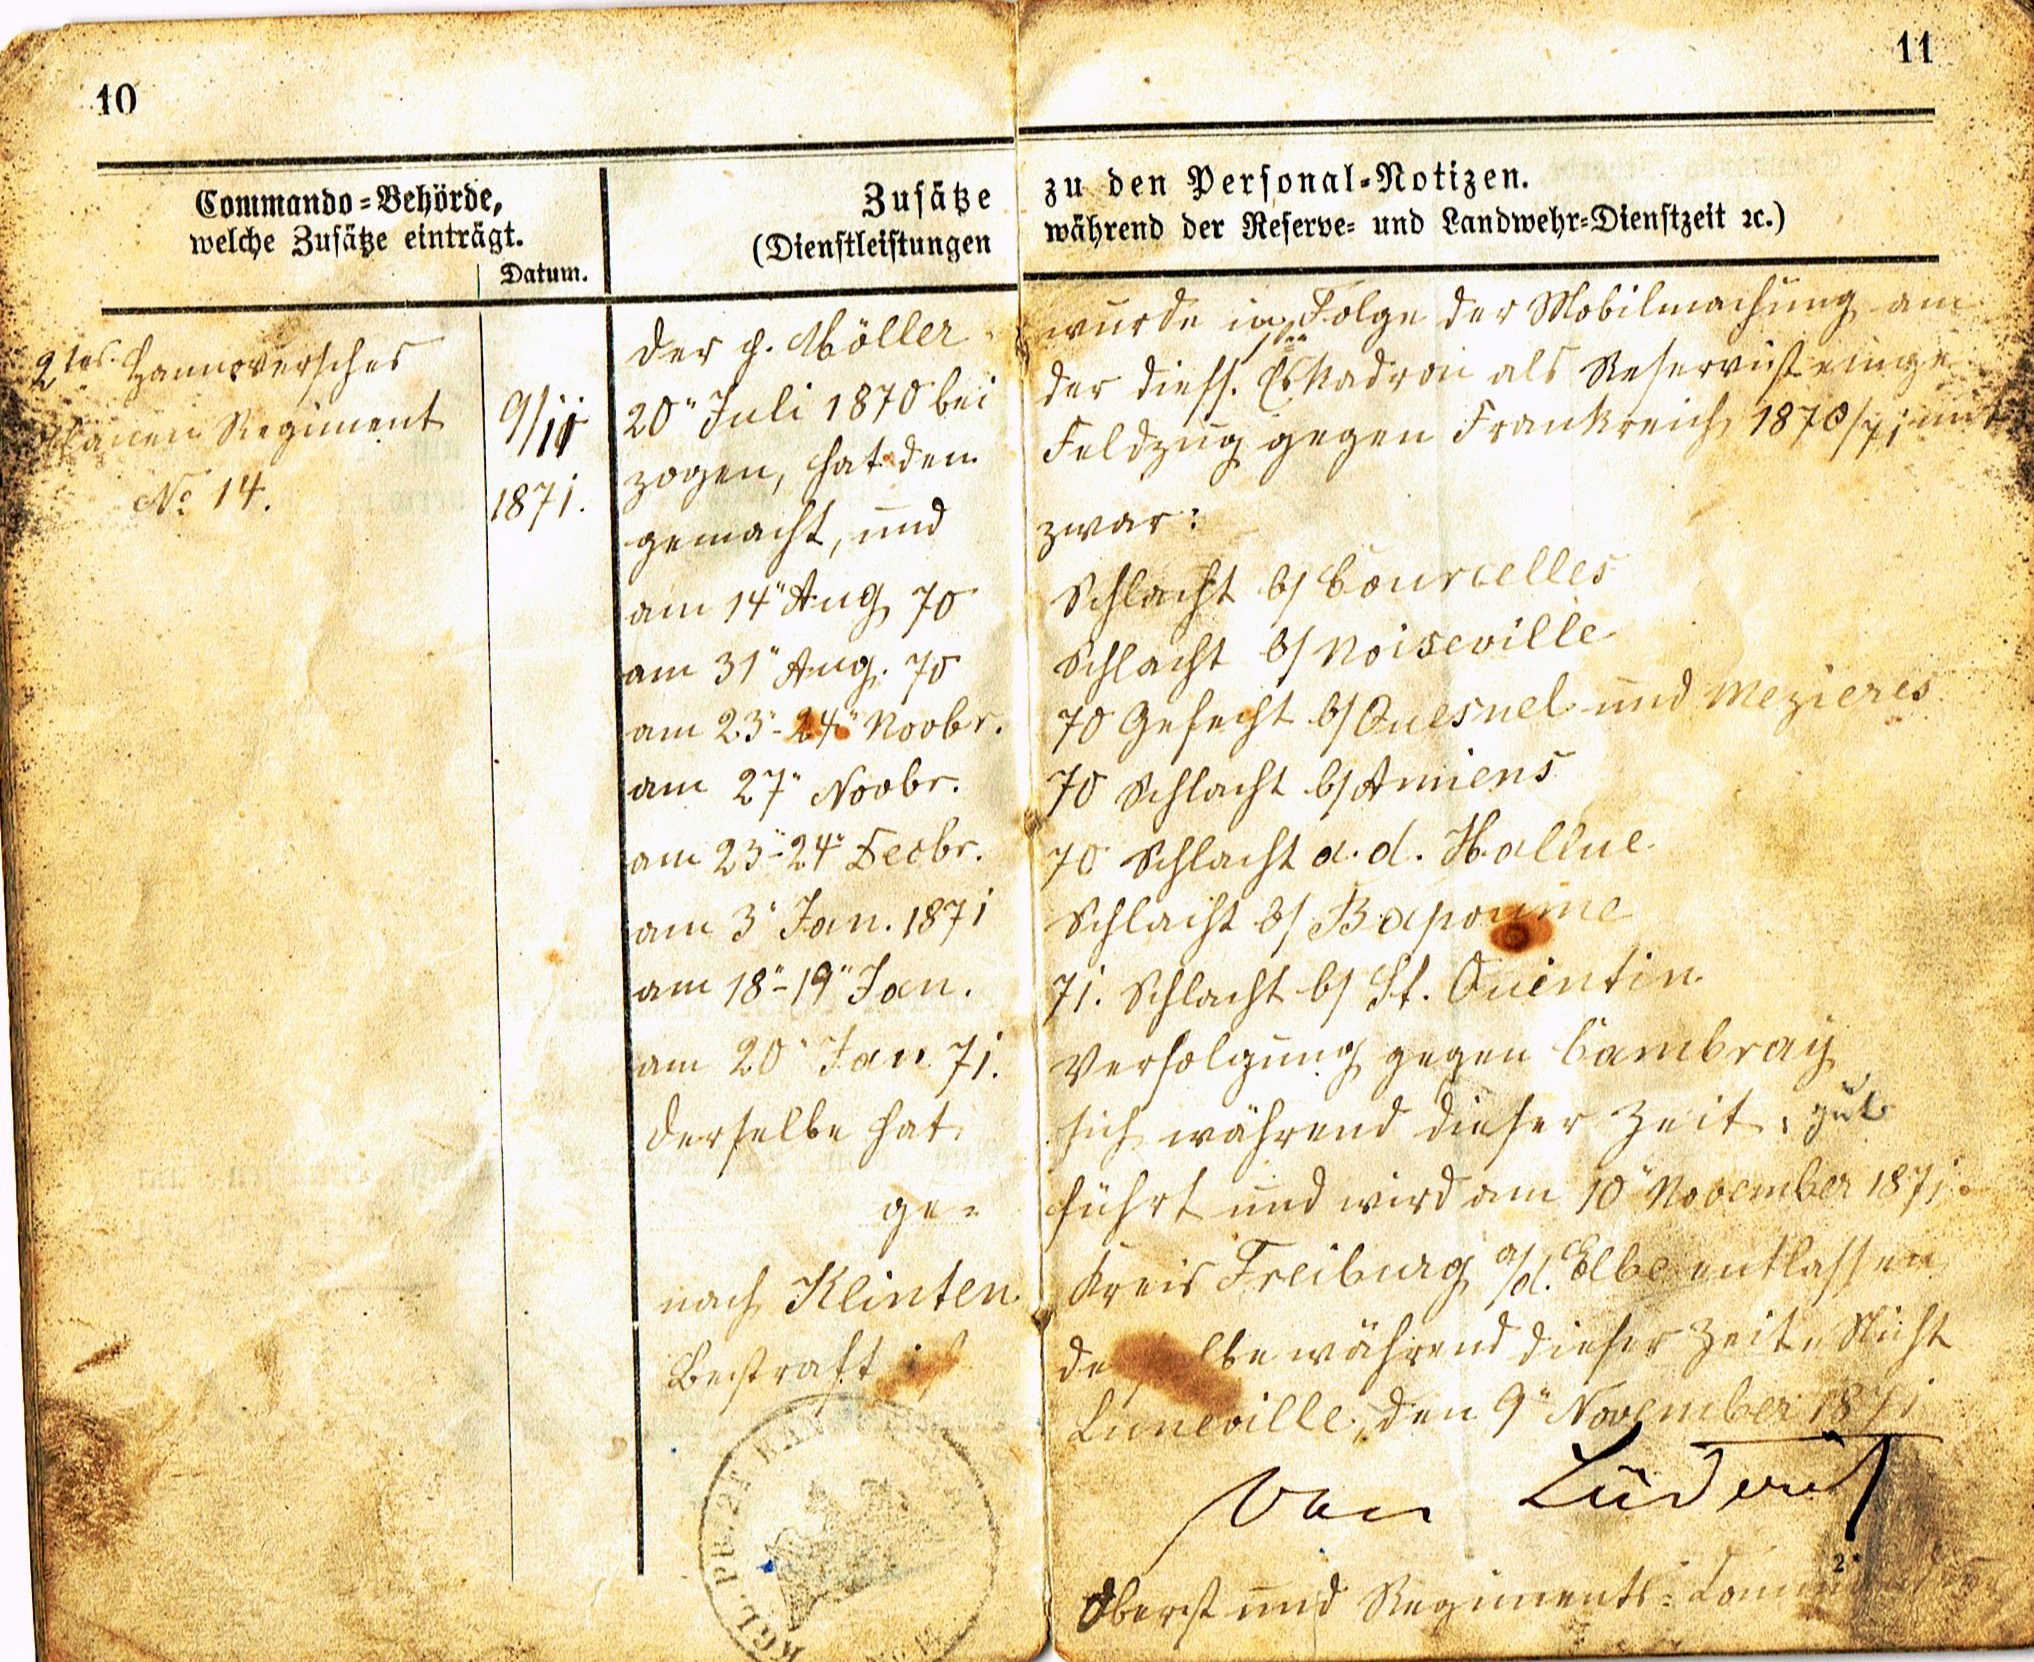 10
11
Commando-Behörde,
welche Zusätze einträgt.
Datum.
Zusätze zu den Personal-Notizen.
(Dienstleistungen während der Reserve- und Landwehr-Dienstzeit ꝛc.)
2tes Hannoversches
Ulanen Regiment
No 14.
9/11
1871.
Der p. Möller wurde in Folge der Mobilmachung am
20" Juli 1870 bei der dießs. Eskadron als Reservist einge
zogen, hat den Feldzug gegen Frankreich 1870/71 mit
gemacht, und zwar:
am 14" Aug 70 Schlacht b/ Courcelles
am 31" Aug. 70 Schlacht b/ Noiseville
am 23"-24" Novbr. 70 Gefecht b/ Quesnel und Mezieres
am 27" Novbr. 70 Schlacht b/ Amiens
am 23"-24" Decbr. 70 Schlacht a. d. Hallue
am 3" Jan. 1871 Schlacht b/ Bapoume
am 18"-19" Jan. 71. Schlacht b/ St. Quentin
am 20" Jan 71. Verfolgung gegen Cambray
Derselbe hat sich während dieser Zeit gut
ge= führt und wird am 10" November 1871
nach Klinten Kreis Freiburg a/d. Elbe entlassen
Bestraft ist derselbe während dieser Zeit Nicht
Luneville, den 9" November 1871
von Lüderitz
Oberst und Regiments-Commandeur
2*
KGL. PR. 2T HAN